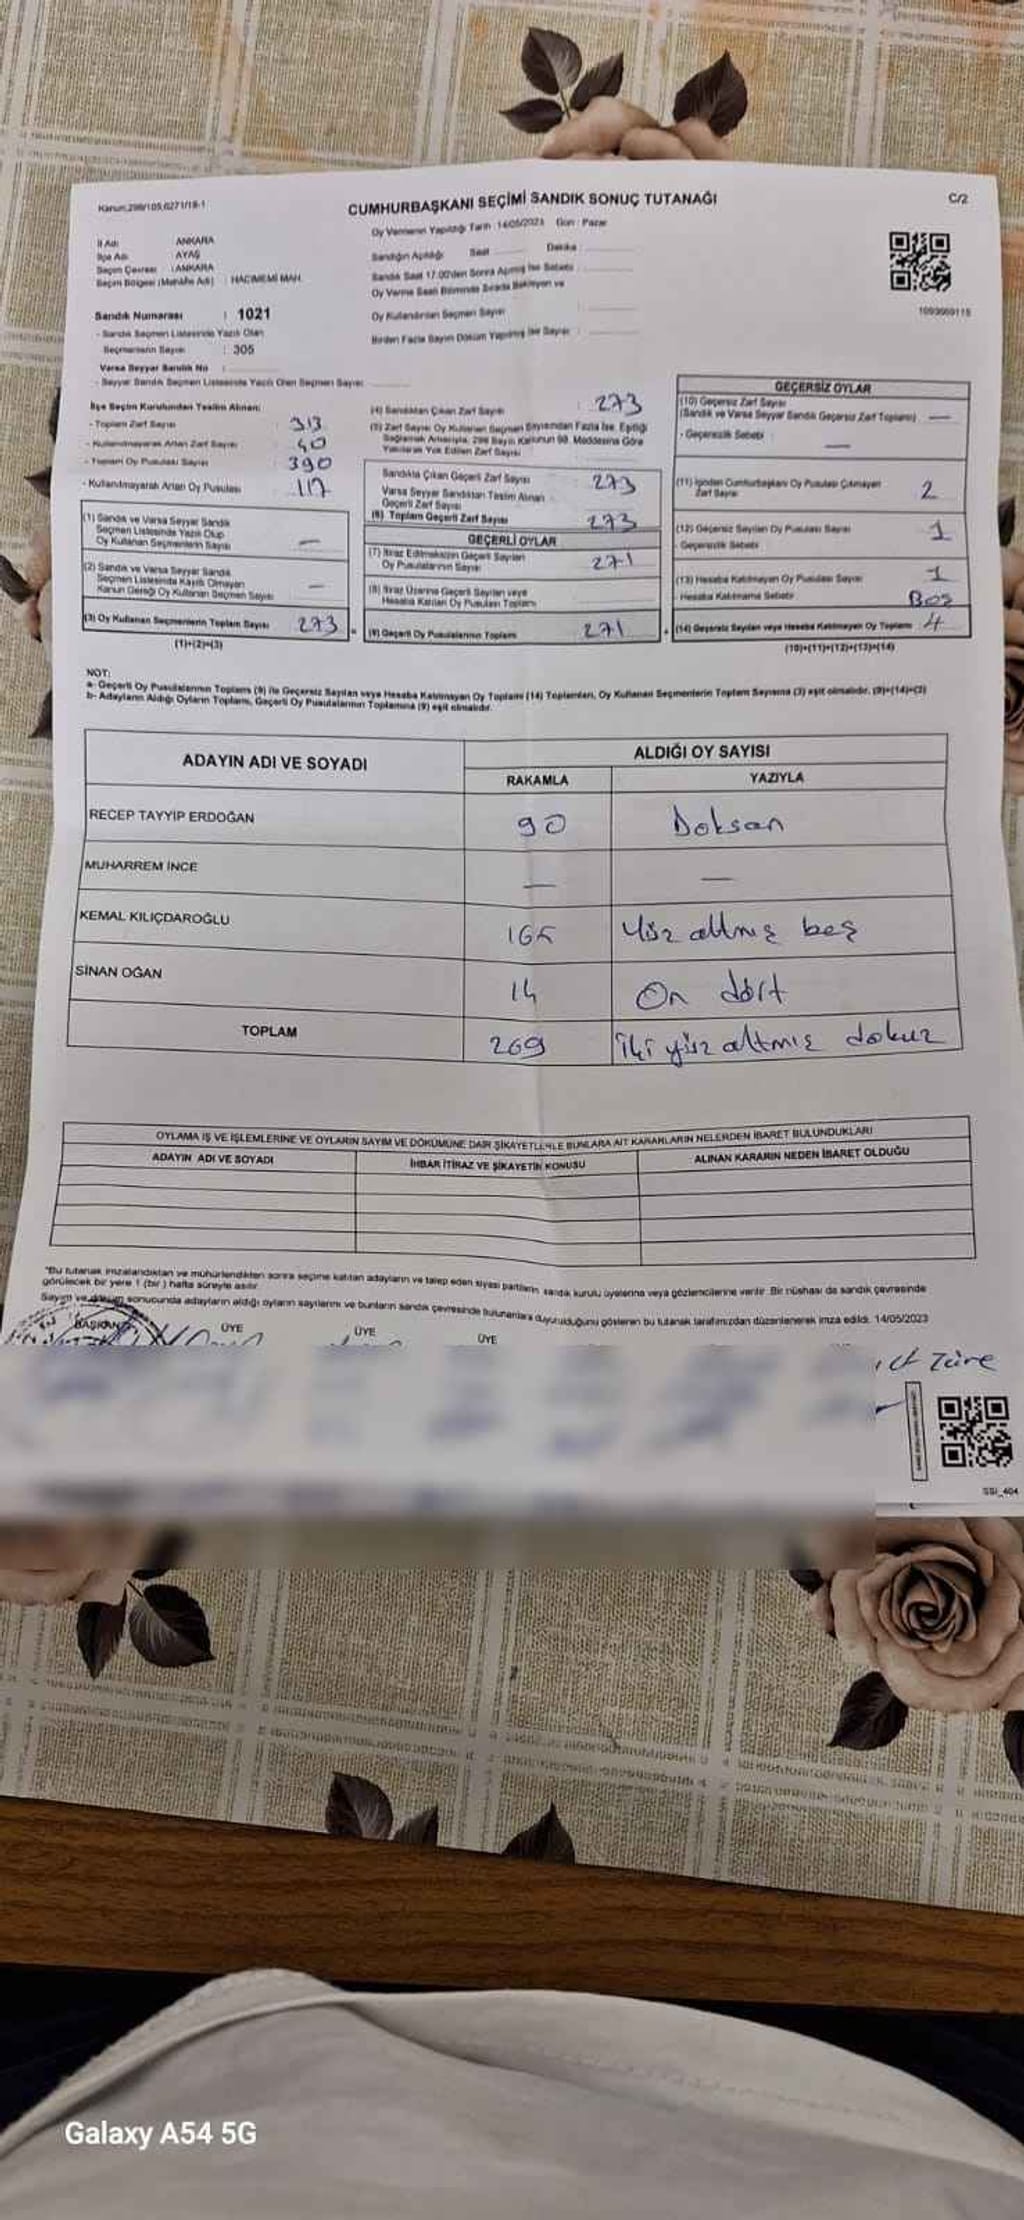 Kanun:298/105,6271/18-1
CUMHURBAŞKANI SEÇİMİ SANDIK SONUÇ TUTANAĞI
C/2
Oy Vermenin Yapıldığı Tarih : 14/05/2023 Gün : Pazar
İl Adı : ANKARA
İlçe Adı : AYAŞ
Seçim Çevresi : ANKARA
Seçim Bölgesi (Mahalle Adı) : HACIMEMİ MAH.
Sandığın Açıldığı Saat Dakika
Sandık Saat 17.00'den Sonra Açılmış İse Sebebi
Oy Verme Saati Bitiminde Sırada Bekleyen ve
Oy Kullandırılan Seçmen Sayısı
Birden Fazla Sayım Döküm Yapılmış İse Sayısı
Sandık Numarası : 1021
- Sandık Seçmen Listesinde Yazılı Olan
Seçmenlerin Sayısı : 305
Varsa Seyyar Sandık No :
- Seyyar Sandık Seçmen Listesinde Yazılı Olan Seçmen Sayısı
İlçe Seçim Kurulundan Teslim Alınan:
- Toplam Zarf Sayısı 313
- Kullanılmayarak Artan Zarf Sayısı 40
- Toplam Oy Pusulası Sayısı 390
- Kullanılmayarak Artan Oy Pusulası 117
(1) Sandık ve Varsa Seyyar Sandık
Seçmen Listesinde Yazılı Olup
Oy Kullanan Seçmenlerin Sayısı —
(2) Sandık ve Varsa Seyyar Sandık
Seçmen Listesinde Kayıtlı Olmayan
Kanun Gereği Oy Kullanan Seçmen Sayısı —
(3) Oy Kullanan Seçmenlerin Toplam Sayısı 273
(1)+(2)=(3)
(4) Sandıktan Çıkan Zarf Sayısı 273
(5) Zarf Sayısı Oy Kullanan Seçmen Sayısından Fazla İse, Eşitliği
Sağlamak Amacıyla, 298 Sayılı Kanunun 98. Maddesine Göre
Yakılarak Yok Edilen Zarf Sayısı
Sandıkta Çıkan Geçerli Zarf Sayısı 273
Varsa Seyyar Sandıktan Teslim Alınan
Geçerli Zarf Sayısı
(6) Toplam Geçerli Zarf Sayısı 273
GEÇERLİ OYLAR
(7) İtiraz Edilmeksizin Geçerli Sayılan
Oy Pusulalarının Sayısı 271
(8) İtiraz Üzerine Geçerli Sayılan veya
Hesaba Katılan Oy Pusulası Toplamı
(9) Geçerli Oy Pusulalarının Toplamı 271
GEÇERSİZ OYLAR
(10) Geçersiz Zarf Sayısı
(Sandık ve Varsa Seyyar Sandık Geçersiz Zarf Toplamı) —
- Geçersizlik Sebebi : —
(11) İçinden Cumhurbaşkanı Oy Pusulası Çıkmayan
Zarf Sayısı 2
(12) Geçersiz Sayılan Oy Pusulası Sayısı 1
- Geçersizlik Sebebi :
(13) Hesaba Katılmayan Oy Pusulası Sayısı 1
- Hesaba Katılmama Sebebi : BOŞ
(14) Geçersiz Sayılan veya Hesaba Katılmayan Oy Toplamı 4
(10)+(11)+(12)+(13)=(14)
NOT:
a- Geçerli Oy Pusulalarının Toplamı (9) ile Geçersiz Sayılan veya Hesaba Katılmayan Oy Toplamı (14) Toplamları, Oy Kullanan Seçmenlerin Toplam Sayısına (3) eşit olmalıdır. (9)+(14)=(3)
b- Adayların Aldığı Oyların Toplamı, Geçerli Oy Pusulalarının Toplamına (9) eşit olmalıdır.
ADAYIN ADI VE SOYADI
ALDIĞI OY SAYISI
RAKAMLA YAZIYLA
RECEP TAYYİP ERDOĞAN 90 Doksan
MUHARREM İNCE — —
KEMAL KILIÇDAROĞLU 165 Yüz altmış beş
SİNAN OĞAN 14 On dört
TOPLAM 269 İki yüz altmış dokuz
OYLAMA İŞ VE İŞLEMLERİNE VE OYLARIN SAYIM VE DÖKÜMÜNE DAİR ŞİKAYETLERLE BUNLARA AİT KARARLARIN NELERDEN İBARET BULUNDUKLARI
ADAYIN ADI VE SOYADI İHBAR İTİRAZ VE ŞİKAYETİN KONUSU ALINAN KARARIN NEDEN İBARET OLDUĞU
*Bu tutanak imzalandıktan ve mühürlendikten sonra seçime katılan adayların ve talep eden siyasi partilerin sandık kurulu üyelerine veya gözlemcilerine verilir. Bir nüshası da sandık çevresinde
görülecek bir yere 1 (bir) hafta süreyle asılır.
Sayım ve döküm sonucunda adayların aldığı oyların sayılarını ve bunların sandık çevresinde bulunanlara duyurulduğunu gösteren bu tutanak tarafımızdan düzenlenerek imza edildi. 14/05/2023
BAŞKAN ÜYE ÜYE ÜYE
SSI_404
Galaxy A54 5G